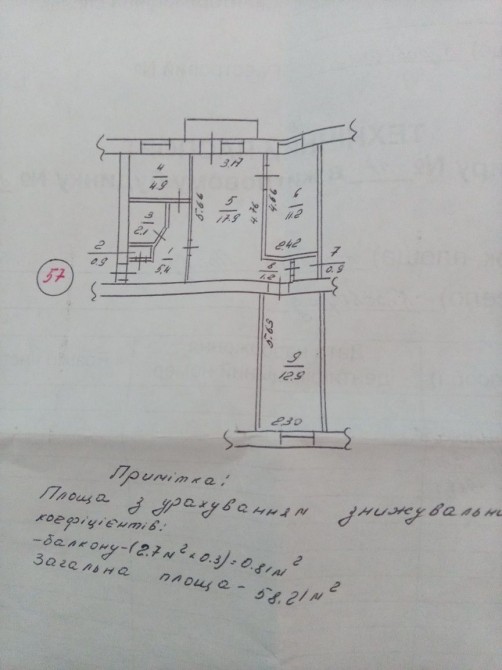 3.17
4
4.9
5.66
5
17.9
4.76
4.66
6
11.2
3
2.1
2.42
2
0.9
1
5.4
8
1.2
7
0.9
57
5.63
9
12.9
2.30
Примітка:
Площа з урахуванням знижувальни
коефіцієнтів:
-балкону-(2.7м²х0.3)=0.81м²
Загальна площа- 58.21м²